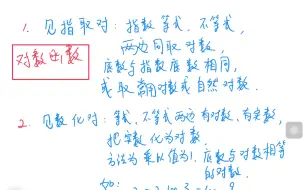 1. 见指取对：指数等式、不等式，
两边同取对数，
对数与数
底数与指数底数相同，
或取常用对数或自然对数.
2. 见数化对：等式、不等式两边有对数、有实数，
把实数化为对数.
方法为乘以值为1、底数与对数相等
的对数.
如: